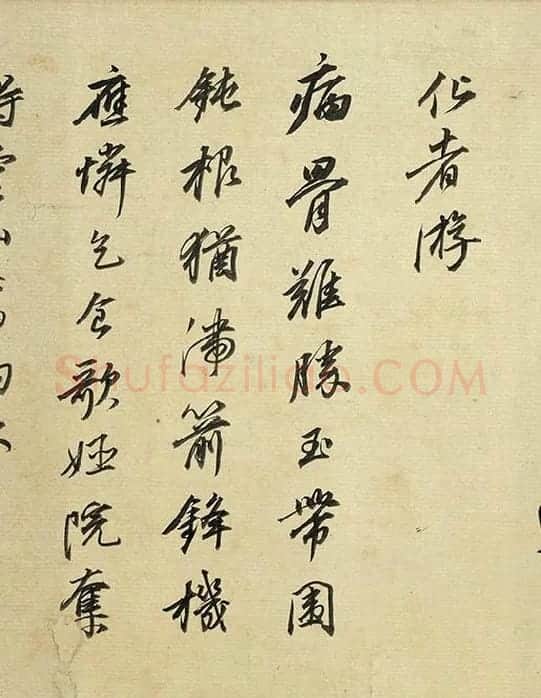 化者游
病骨難勝玉帶圍
鈍根猶滯箭鋒機
應憐乞食歌姬院奪
Shufaziliao.COM